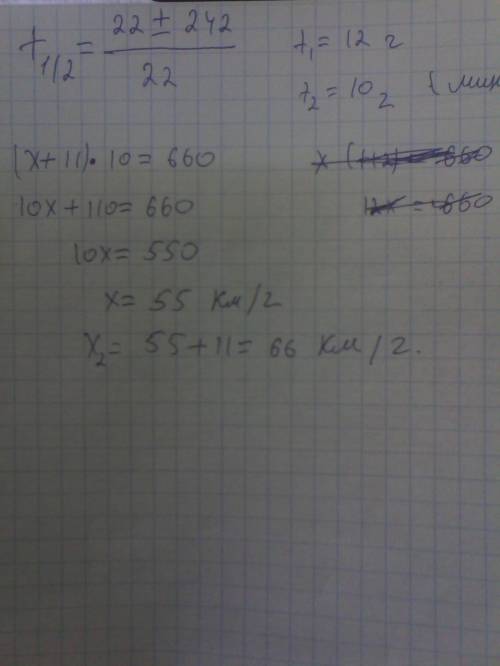 t1/2 = (22 ± 242)/22
t1 = 12 г
t2 = 10 г (мин
(x+11)·10 = 660
10x + 110 = 660
10x = 550
x = 55 км/г
x2 = 55 + 11 = 66 км/г.